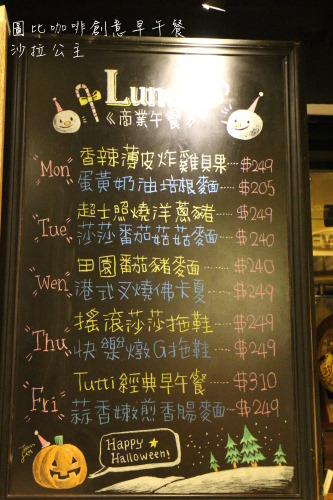 圖比咖啡創意早午餐
沙拉公主
《商業午餐
Mon
香辣薄皮炸雞貝果 $249
蛋黃奶油培根麵 $205
Tue
超士照燒洋蔥豬 $249
莎莎番茄菇菇麵 $240
Wen
田園番茄豬麵 $240
港式叉燒佛卡夏 $249
Thu
搖滾莎莎拖鞋 $249
快樂燉G拖鞋 $249
Fri
Tutti經典早午餐 $310
蒜香嫩煎香腸麵 $249
Happy
Halloween!